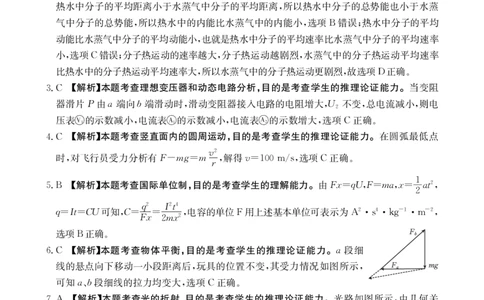 热水中分子的平均距离小于水蒸气中分子的平均距离,所以热水中分子的总势能也小于水蒸
气中分子的总势能,所以热水中的内能比水蒸气中的内能小,选项B错误;热水中分子的平均
动能比水蒸气中分子的平均动能小,也就是热水中分子的平均速率比水蒸气中分子的平均速率
小,选项C错误;分子热运动的速率越大,分子热运动越剧烈,水蒸气中的分子热运动平均速率
比热水中的分子热运动平均速率大,所以水蒸气中的分子热运动更剧烈,故选项D正确。
3. C 【解析】本题考查理想变压器和动态电路分析,目的是考查学生的推理论证能力。当变阻
器滑片P由a端向b端滑动时,滑动变阻器接入电路的电阻增大,U₂不变,总电流减小,则电
压表的示数减小,电流表的示数减小,电流表的示数增大,选项C正确。
4. C 【解析】本题考查竖直面内的圆周运动,目的是考查学生的推理论证能力。在圆弧最低点
时,对飞行员受力分析有F-mg=m v²/r,解得v=100 m/s,选项C正确。
5. B 【解析】本题考查国际单位制,目的是考查学生的理解能力。由Fx=qU,F=ma,x=1/2 at²,
q=It=CU可知,C=q²/Fx=I²t⁴/2mx²,电容的单位F用上述基本单位可表示为A²·s⁴·kg⁻¹·m⁻²,
选项B正确。
6. C 【解析】本题考查物体平衡,目的是考查学生的推理论证能力。a段细
线的悬点向下移动一小段距离后,玩具的位置不变,其受力情况如图所示,
可知a、b段细线的拉力均变大,选项C正确。
Fb
Fa
mg
7. A 【解析】本题考查光的折射,目的是考查学生的推理论证能力。光路如图所示,由几何关